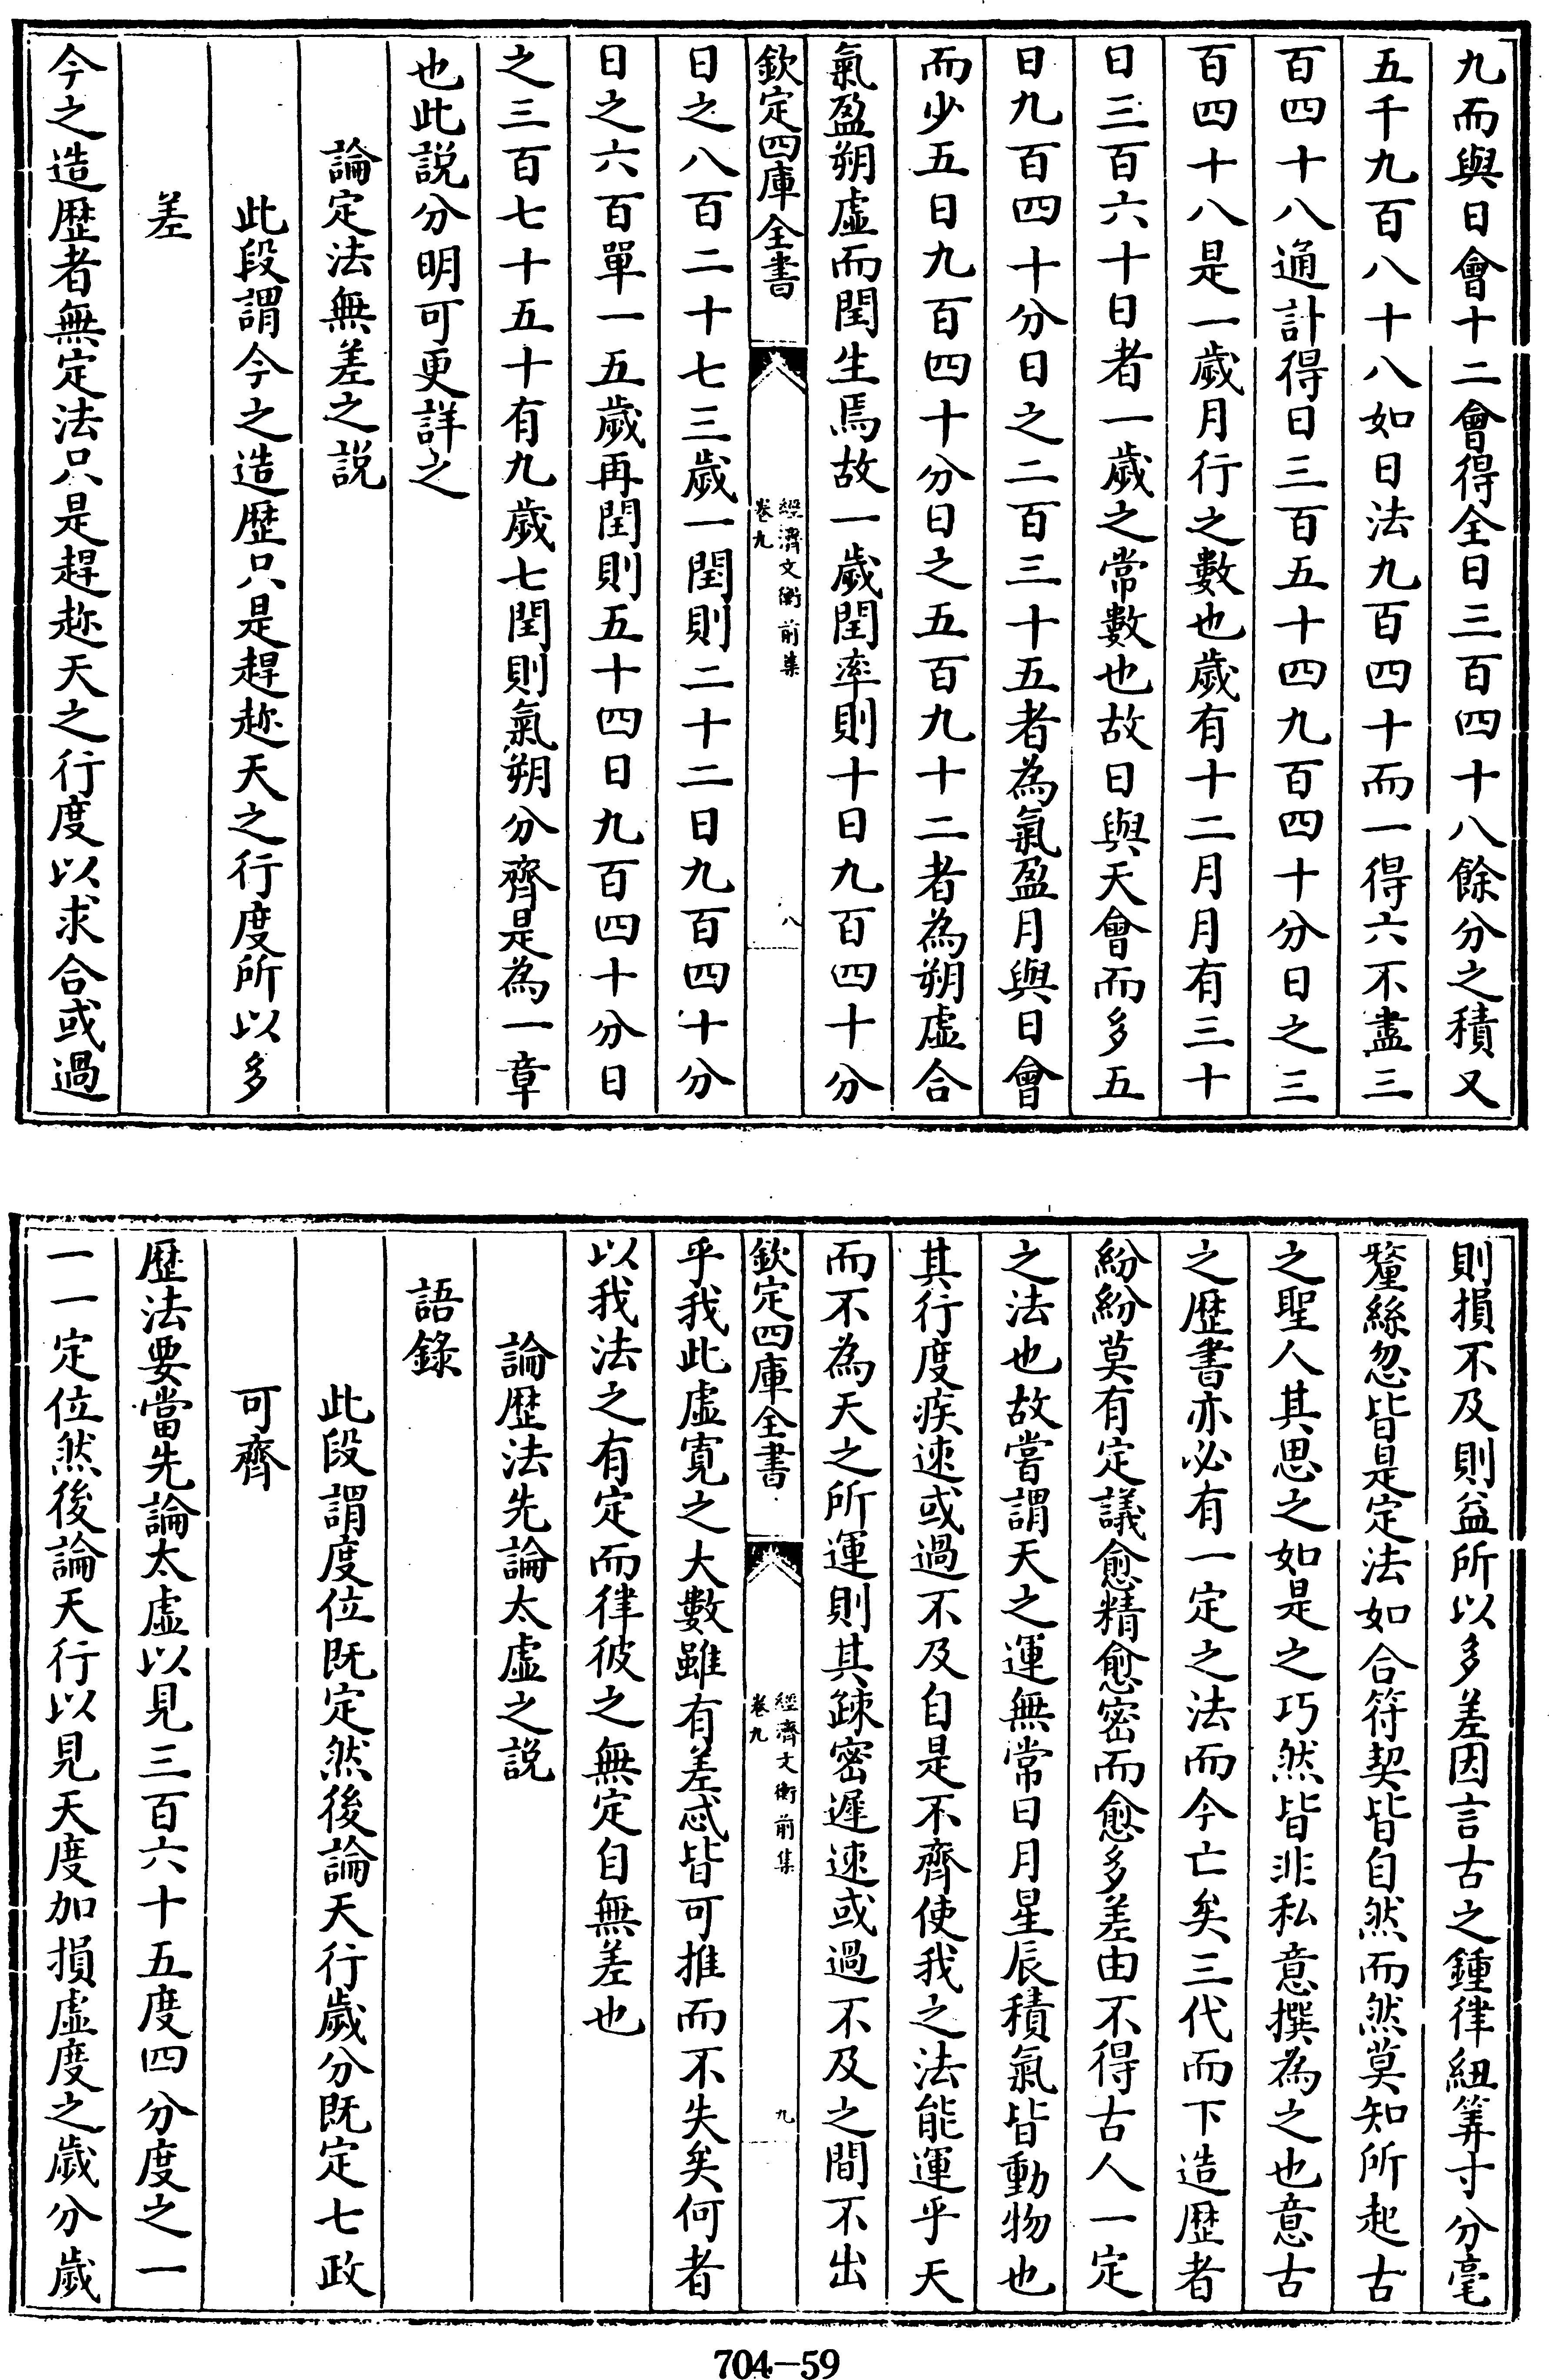 九而與日會十二會得全日三百四十八餘分之積又
五千九百八十八如日法九百四十而一得六不盡三
百四十八通計得日三百五十四九百四十分日之三
百四十八是一歲月行之數也歲有十二月月有三十
日三百六十日者一歲之常數也故日與天會而多五
日九百四十分日之二百三十五者為氣盈月與日會
而少五日九百四十分日之五百九十二者為朔虛合
氣盈朔虛而閏生焉故一歲閏率則十日九百四十分
欽定四庫全書
經濟文衡前集
卷九
八
日之八百二十七三歲一閏則三十二日九百四十分
日之六百單一五歲再閏則五十四日九百四十分日
之三百七十五十有九歲七閏則氣朔分齊是為一章
也此說分明可更詳之
論定法無差之說
此段謂今之造歷只是趕趂天之行度所以多
差
今之造歷者無定法只是趕趂天之行度以求合或過
則損不及則益所以多差因言古之鍾律紐筭寸分毫
釐絲忽皆是定法如合符契皆自然而然莫知所起古
之聖人其思之如是之巧然皆非私意撰為之也意古
之歷書亦必有一定之法而今亡矣三代而下造歷者
紛紛莫有定議愈精愈密而愈多差由不得古人一定
之法也故嘗謂天之運無常日月星辰積氣皆動物也
其行度疾速或過不及自是不齊使我之法能運乎天
而不為天之所運則其疎密遲速或過不及之間不出
欽定四庫全書
經濟文衡前集
卷九
九
乎我此虛寬之大數雖有差忒皆可推而不失矣何者
以我法之有定而律彼之無定自無差也
論歷法先論太虛之說
語錄
此段謂度位既定然後論天行歲分既定七政
可齊
歷法要當先論太虛以見三百六十五度四分度之一
一一定位然後論天行以見天度加損虛度之歲分歲
704—59